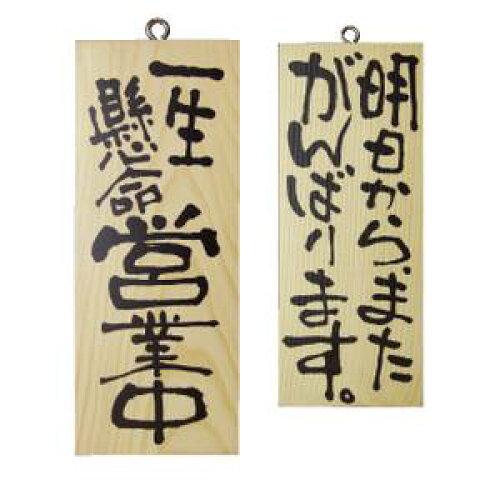 一生
懸命
営業中
明日からまた
がんばります。